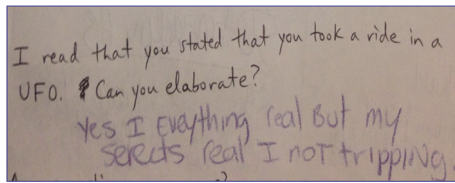 I read that you stated that you took a ride in a
UFO. Can you elaborate?
Yes I Eveything real But my
serects real I not tripping.